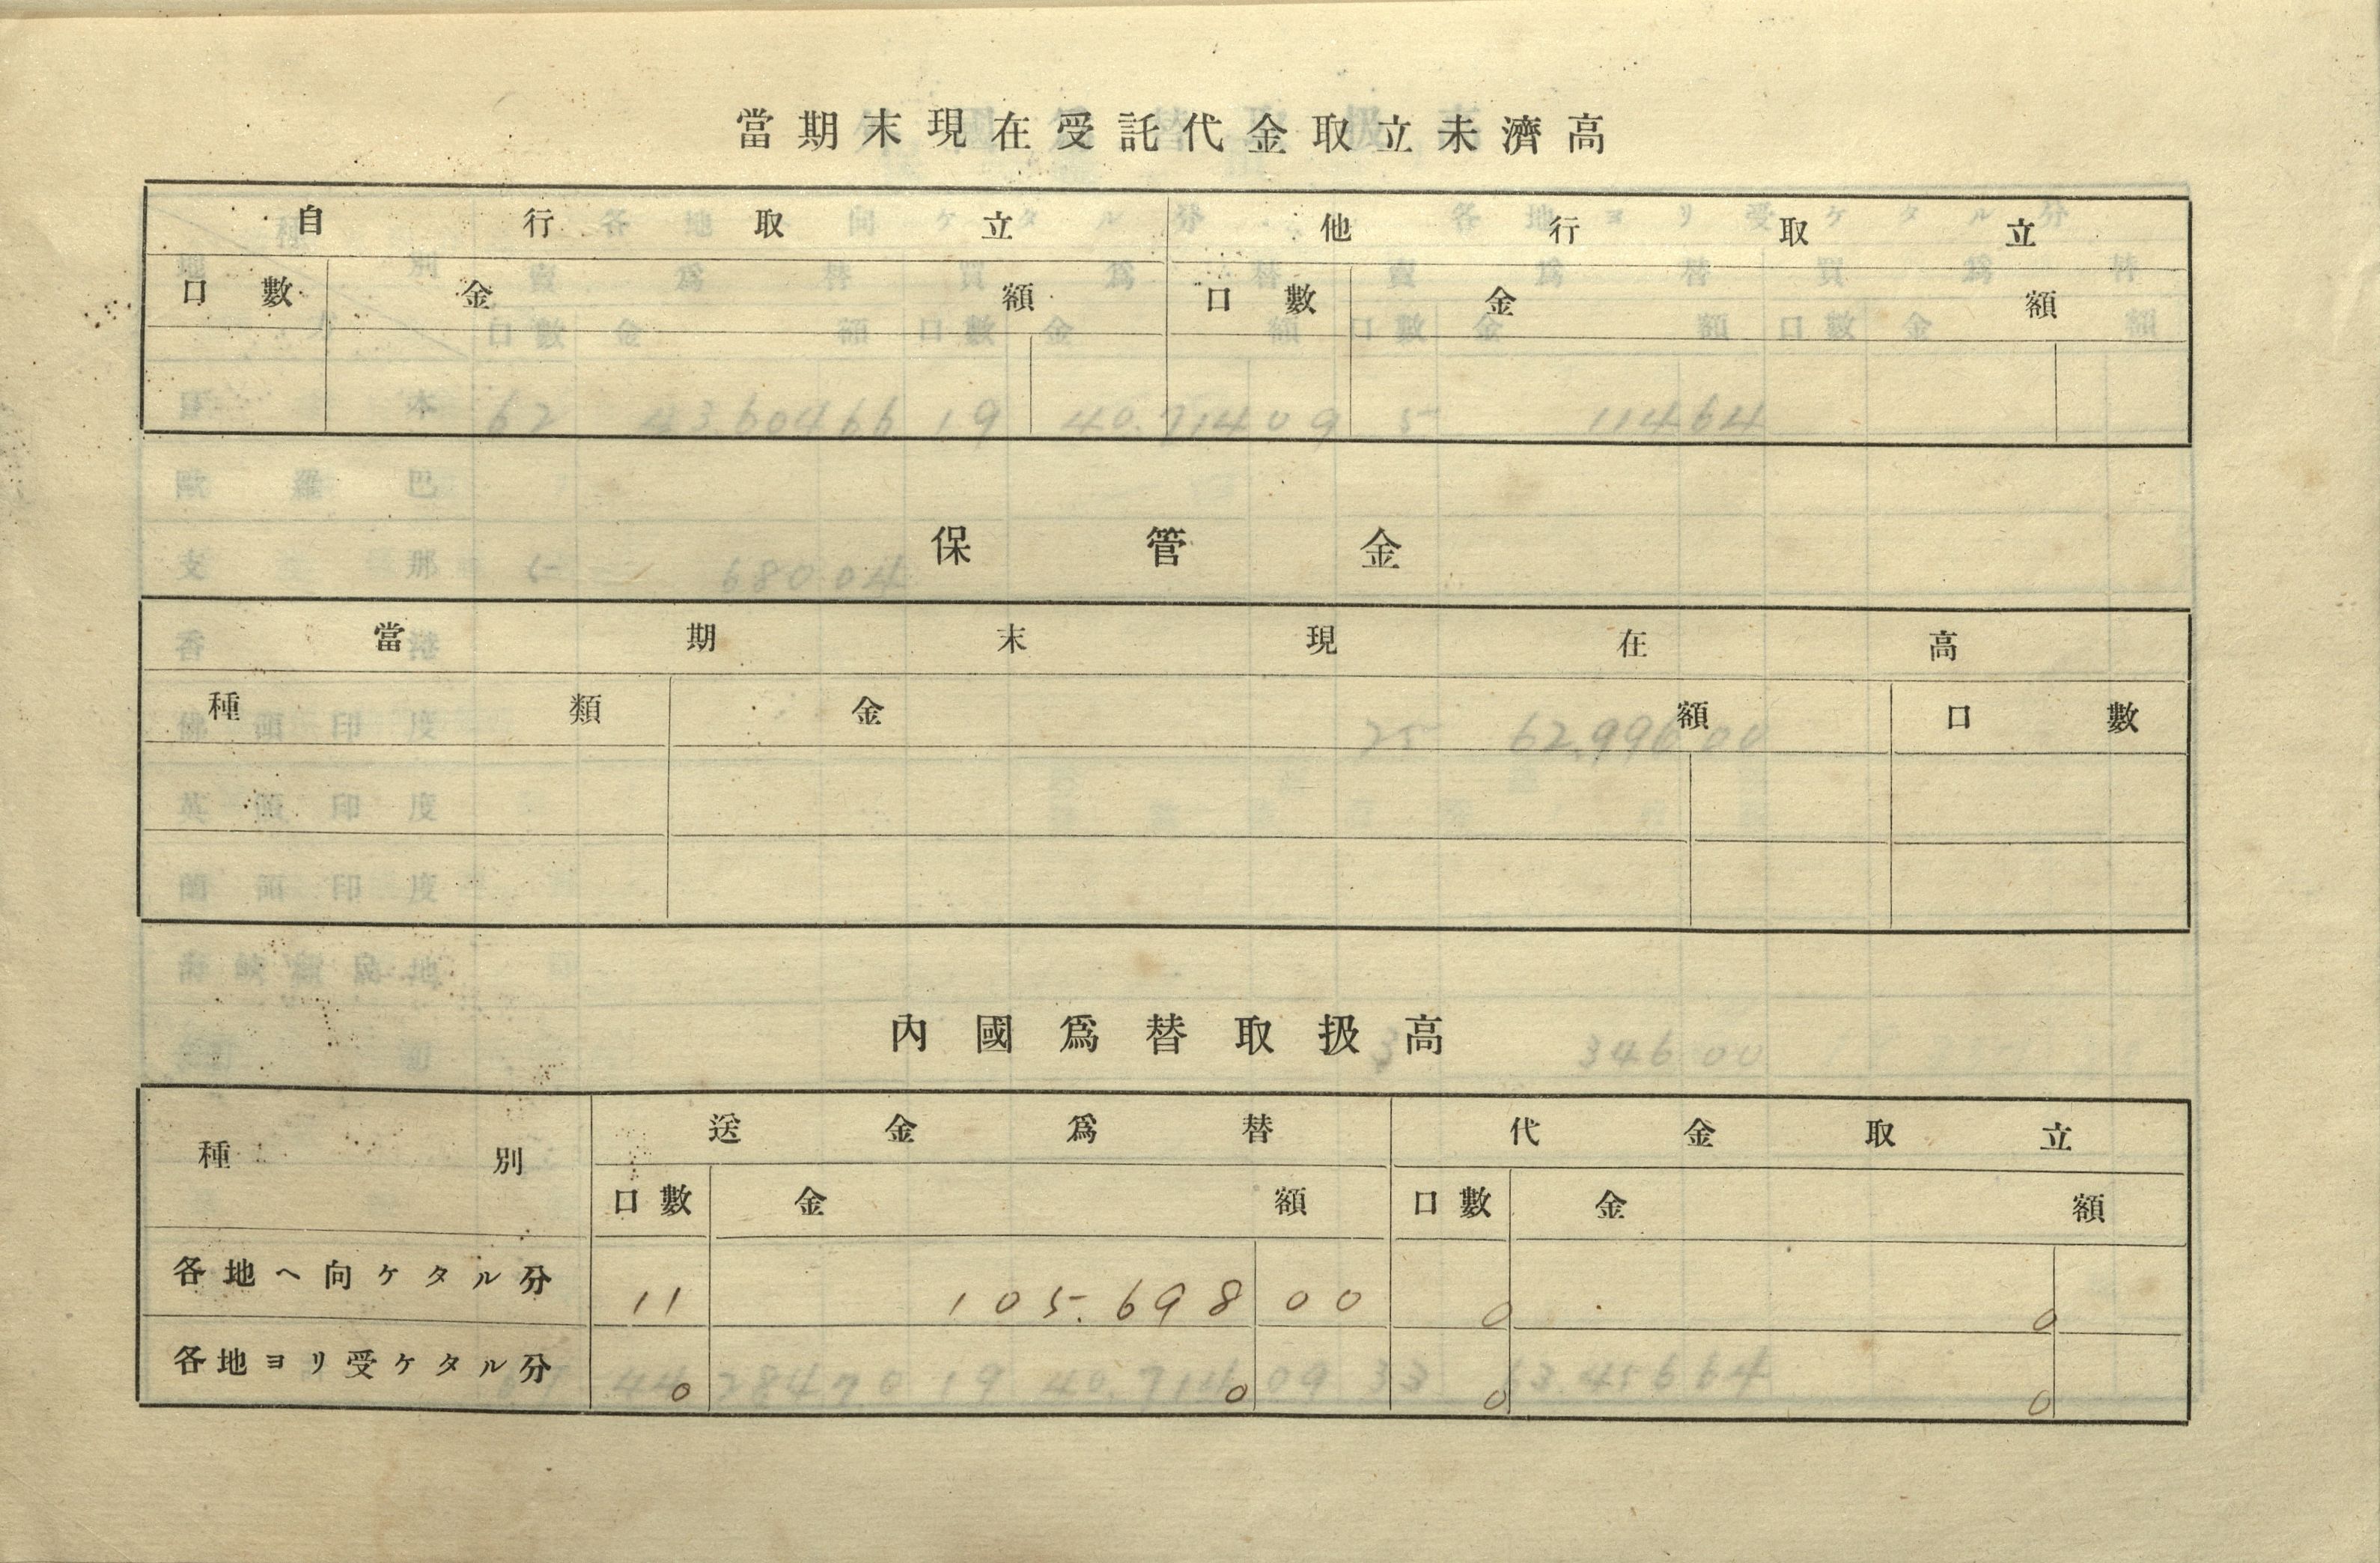 當期末現在受託代金取立未濟高
自行取立 他行取立
口數 金額 口數 金額
保管金
當期末現在高
種類 金額 口數
內國爲替取扱高
種別 送金爲替 代金取立
口數 金額 口數 金額
各地ヘ向ケタル分 11 105.698 00 0 0
各地ヨリ受ケタル分 0 0 0 0